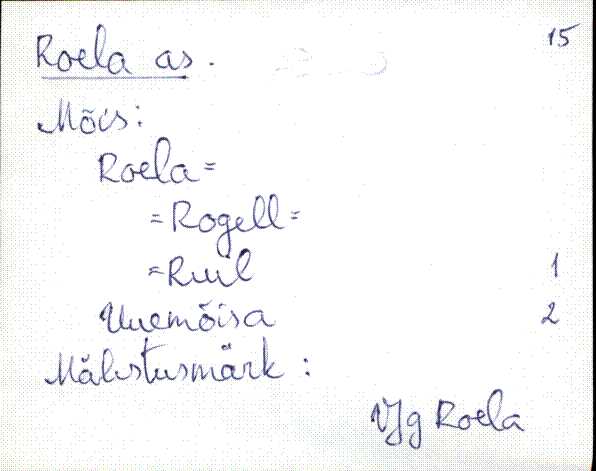 15
Roela as.
Mõis:
Roela=
=Rogell=
=Ruil 1
Uuemõisa 2
Mälestusmärk:
VJg Roela